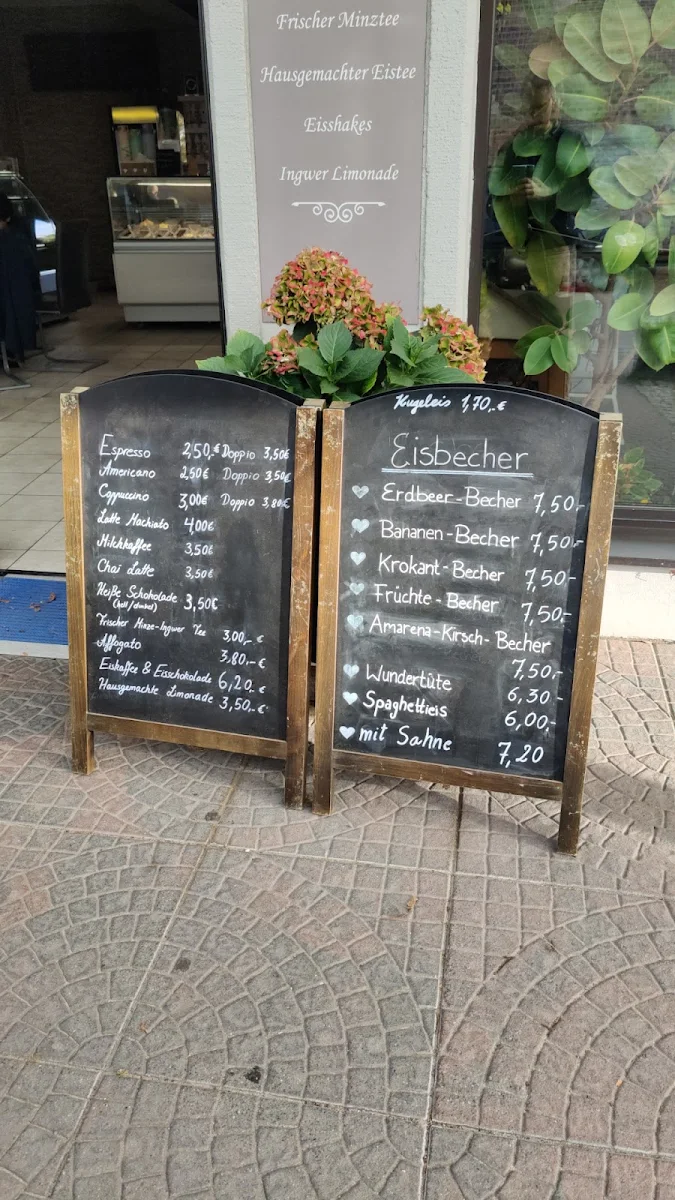 Frischer Minztee
Hausgemachter Eistee
Eisshakes
Ingwer Limonade
Espresso 2,50,-€ Doppio 3,50€
Americano 2,50€ Doppio 3,50€
Cappuccino 3,00€ Doppio 3,80€
Latte Machiato 4,00€
Milchkaffee 3,50€
Chai Latte 3,50€
Heiße Schokolade 3,50€
(hell/dunkel)
Frischer Minze-Ingwer Tee 3,00,-€
Affogato 3,80,-€
Eiskaffee & Eisschokolade 6,20,-€
Hausgemachte Limonade 3,50,-€
Kugeleis 1,70,-€
Eisbecher
Erdbeer-Becher 7,50,-
Bananen-Becher 7,50,-
Krokant-Becher 7,50,-
Früchte-Becher 7,50,-
Amarena-Kirsch-Becher
7,50,-
Wundertüte 6,30,-
Spaghettieis 6,00,-
mit Sahne 7,20